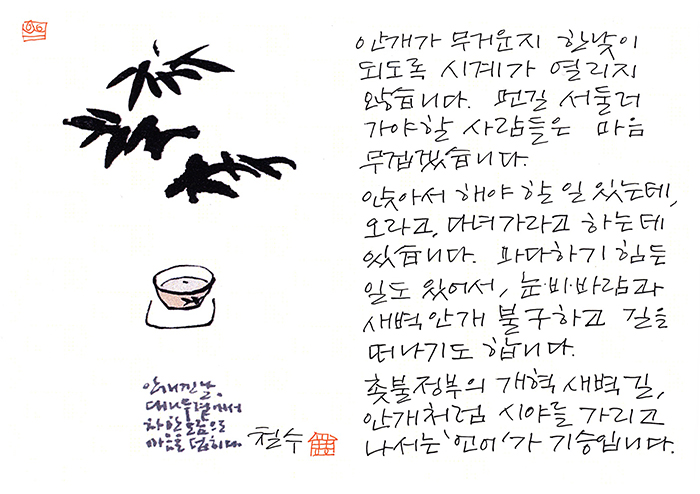 안개낀날,
대나무곁에서
차한모금으로
마음을 덥히다. 철수
안개가 무거운지 한낮이
되도록 시계가 열리지
않습니다. 먼길 서둘러
가야할 사람들은 마음
무겁겠습니다.
앉아서 해야 할 일 있는데,
오라고, 다녀가라고 하는데
있습니다. 마다하기 힘든
일도 있어서, 눈·비·바람과
새벽안개 불구하고 길을
떠나기도 합니다.
촛불정부의 개혁 새벽길,
안개처럼 시야를 가리고
나서는 '언어'가 기승입니다.